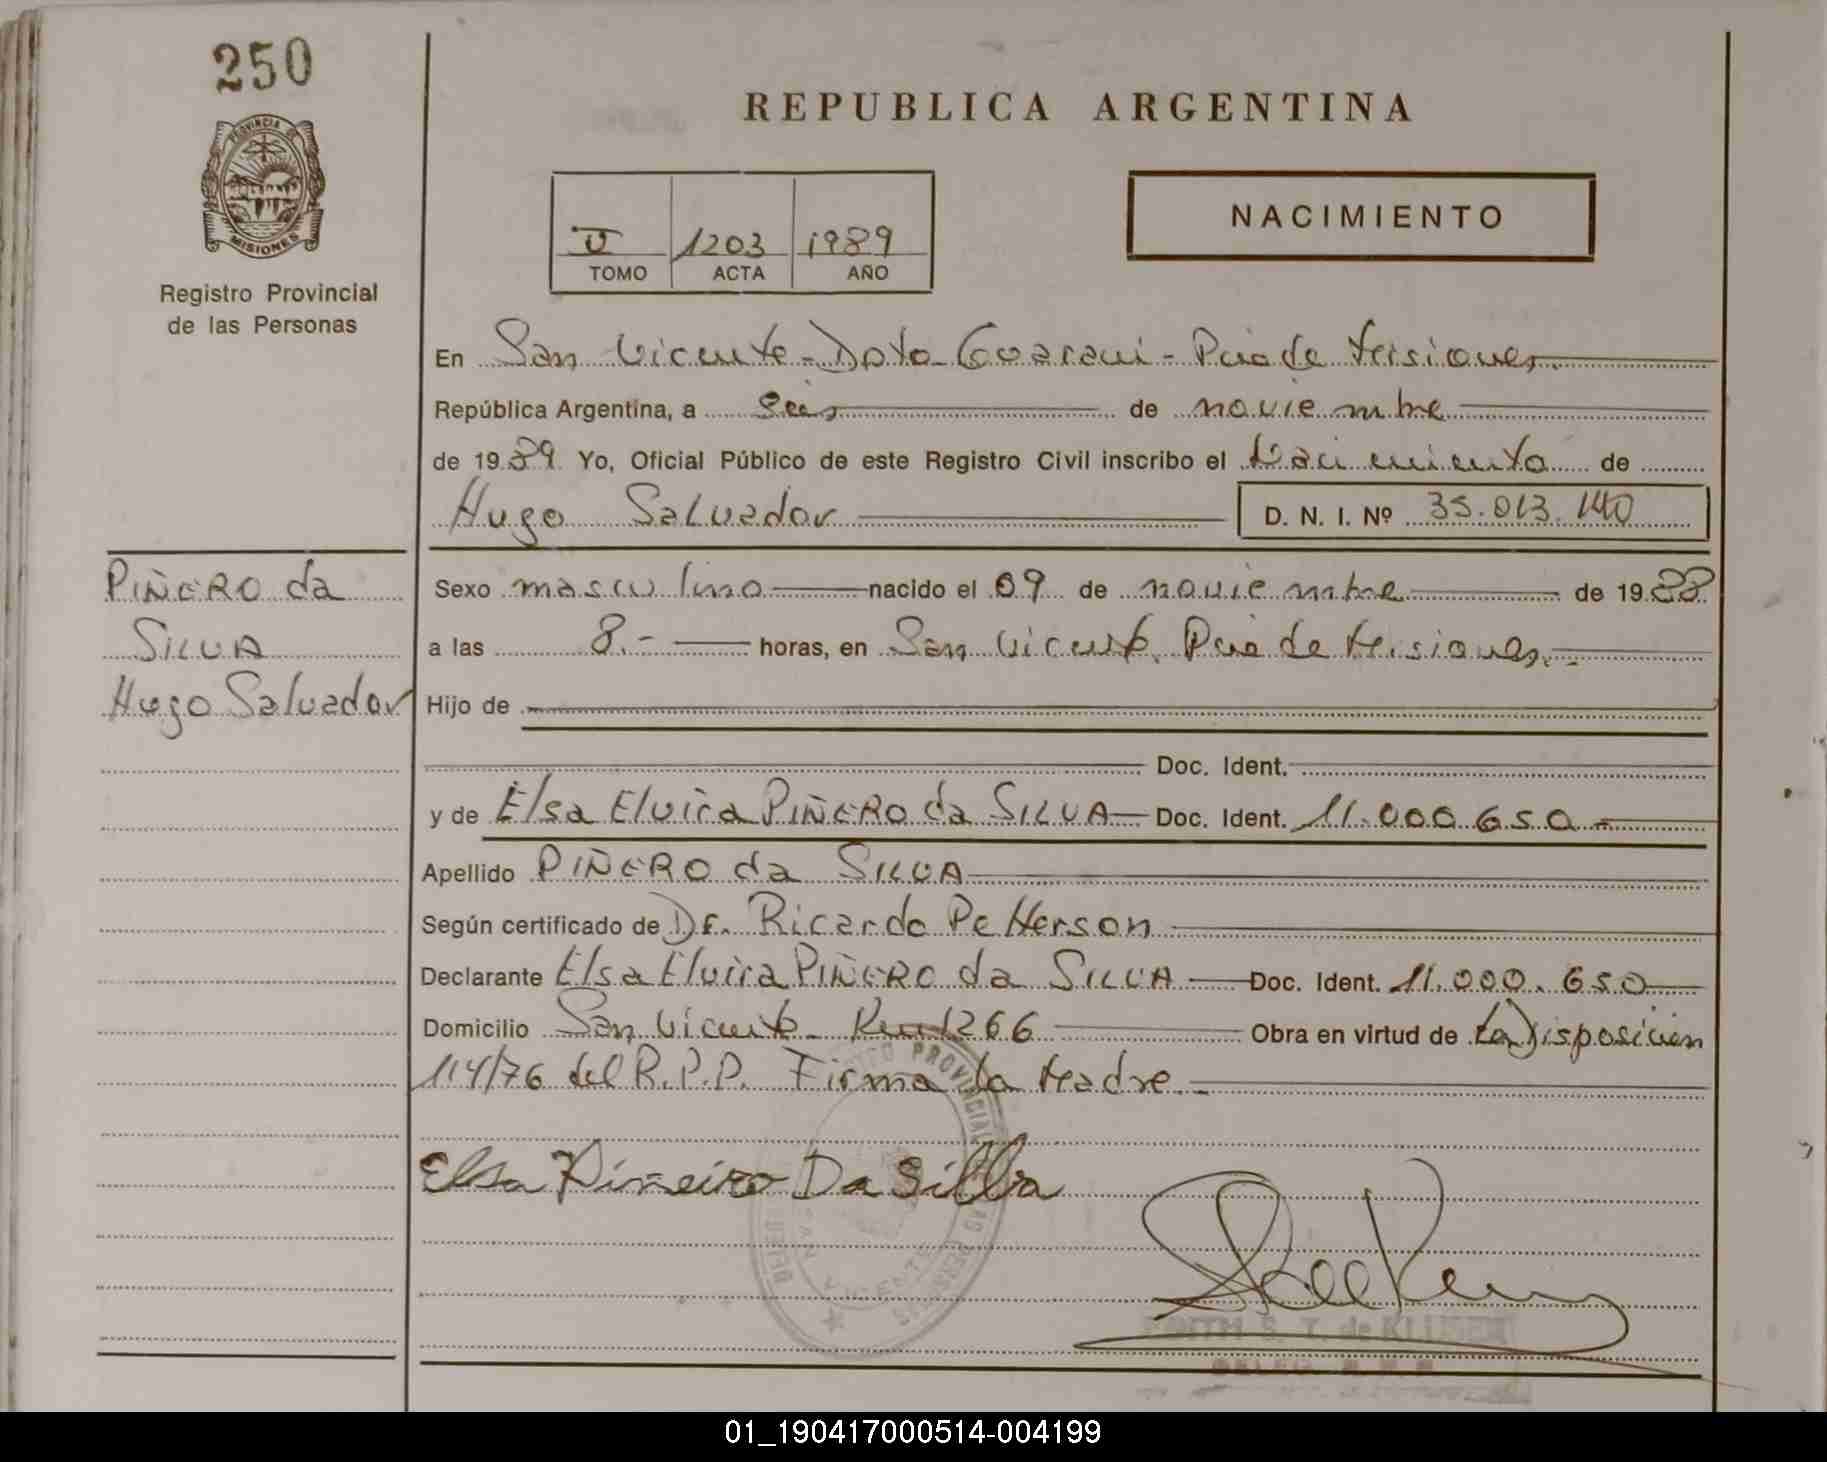 250
REPUBLICA ARGENTINA
PROVINCIA DE
MISIONES
Registro Provincial
de las Personas
V 1203 1989
TOMO ACTA AÑO
NACIMIENTO
En San Vicente - Dpto Guarani - Pcia de Misiones
República Argentina, a seis de noviembre
de 1989 Yo, Oficial Público de este Registro Civil inscribo el Nacimiento de
Hugo Salvador D. N. I. Nº 35.013.140
PIÑERO da
SILVA
Hugo Salvador
Sexo masculino nacido el 09 de noviembre de 1988
a las 8.- horas, en San Vicente, Pcia de Misiones.-
Hijo de
Doc. Ident.
y de Elsa Elvira PIÑERO da SILVA Doc. Ident. 11.000.650
Apellido PIÑERO da SILVA
Según certificado de Dr. Ricardo Petterson
Declarante Elsa Elvira PIÑERO da SILVA Doc. Ident. 11.000.650
Domicilio San Vicente - Km 1266 Obra en virtud de La Disposición
114/76 del R.P.P. Firma la Madre.-
Elsa Piñeiro Da Silba
VICENTE
EDITH S. T. de KLUSEN
01_190417000514-004199